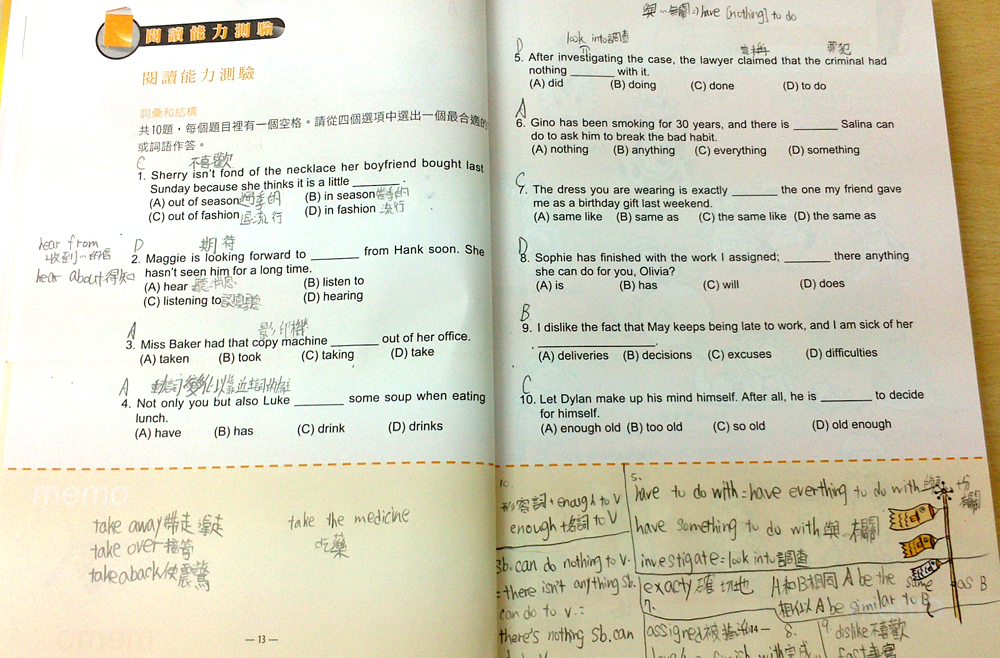 閱讀能力測驗
閱讀能力測驗
詞彙和結構
共10題，每個題目裡有一個空格。請從四個選項中選出一個最合適的
或詞語作答。
C 不喜歡
1. Sherry isn't fond of the necklace her boyfriend bought last
Sunday because she thinks it is a little ________ .
(A) out of season (B) in season 當季的
(C) out of fashion 退流行 (D) in fashion 流行
hear from
收到…的信
hear about 得知
D 期待
2. Maggie is looking forward to ________ from Hank soon. She
hasn't seen him for a long time.
(A) hear 聽消息 (B) listen to
(C) listening to (D) hearing
A 影印機
3. Miss Baker had that copy machine ________ out of her office.
(A) taken (B) took (C) taking (D) take
A 動詞變化以靠近主詞為主
4. Not only you but also Luke ________ some soup when eating
lunch.
(A) have (B) has (C) drink (D) drinks
memo
take away 帶走
take over 接管
take aback 使震驚
take the medicine
吃藥
— 13 —
與…無關 = have [nothing] to do
look into 調查
D 宣稱 罪犯
5. After investigating the case, the lawyer claimed that the criminal had
nothing ________ with it.
(A) did (B) doing (C) done (D) to do
A
6. Gino has been smoking for 30 years, and there is ________ Salina can
do to ask him to break the bad habit.
(A) nothing (B) anything (C) everything (D) something
C
7. The dress you are wearing is exactly ________ the one my friend gave
me as a birthday gift last weekend.
(A) same like (B) same as (C) the same like (D) the same as
D
8. Sophie has finished with the work I assigned; ________ there anything
she can do for you, Olivia?
(A) is (B) has (C) will (D) does
B
9. I dislike the fact that May keeps being late to work, and I am sick of her
____________________.
(A) deliveries (B) decisions (C) excuses (D) difficulties
C
10. Let Dylan make up his mind himself. After all, he is ________ to decide
for himself.
(A) enough old (B) too old (C) so old (D) old enough
10.
形容詞 + enough to V
enough + 名詞 to V
sb. can do nothing to v.
= there isn't anything sb.
can do to v. =
there's nothing sb. can
5.
have to do with = have everthing to do with
have something to do with 與…相關
investigate = look into 調查
exacty 確切地 A和B相同 A be the same as B
7. 相似 A be similar to B
assigned 被 8. 9. dislike 不喜歡
fact 事實